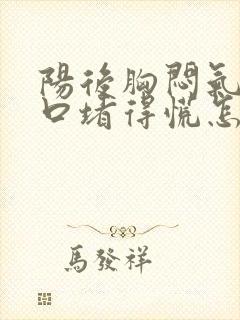 陽後胸悶氣
口堵得慌怎
馬發祥